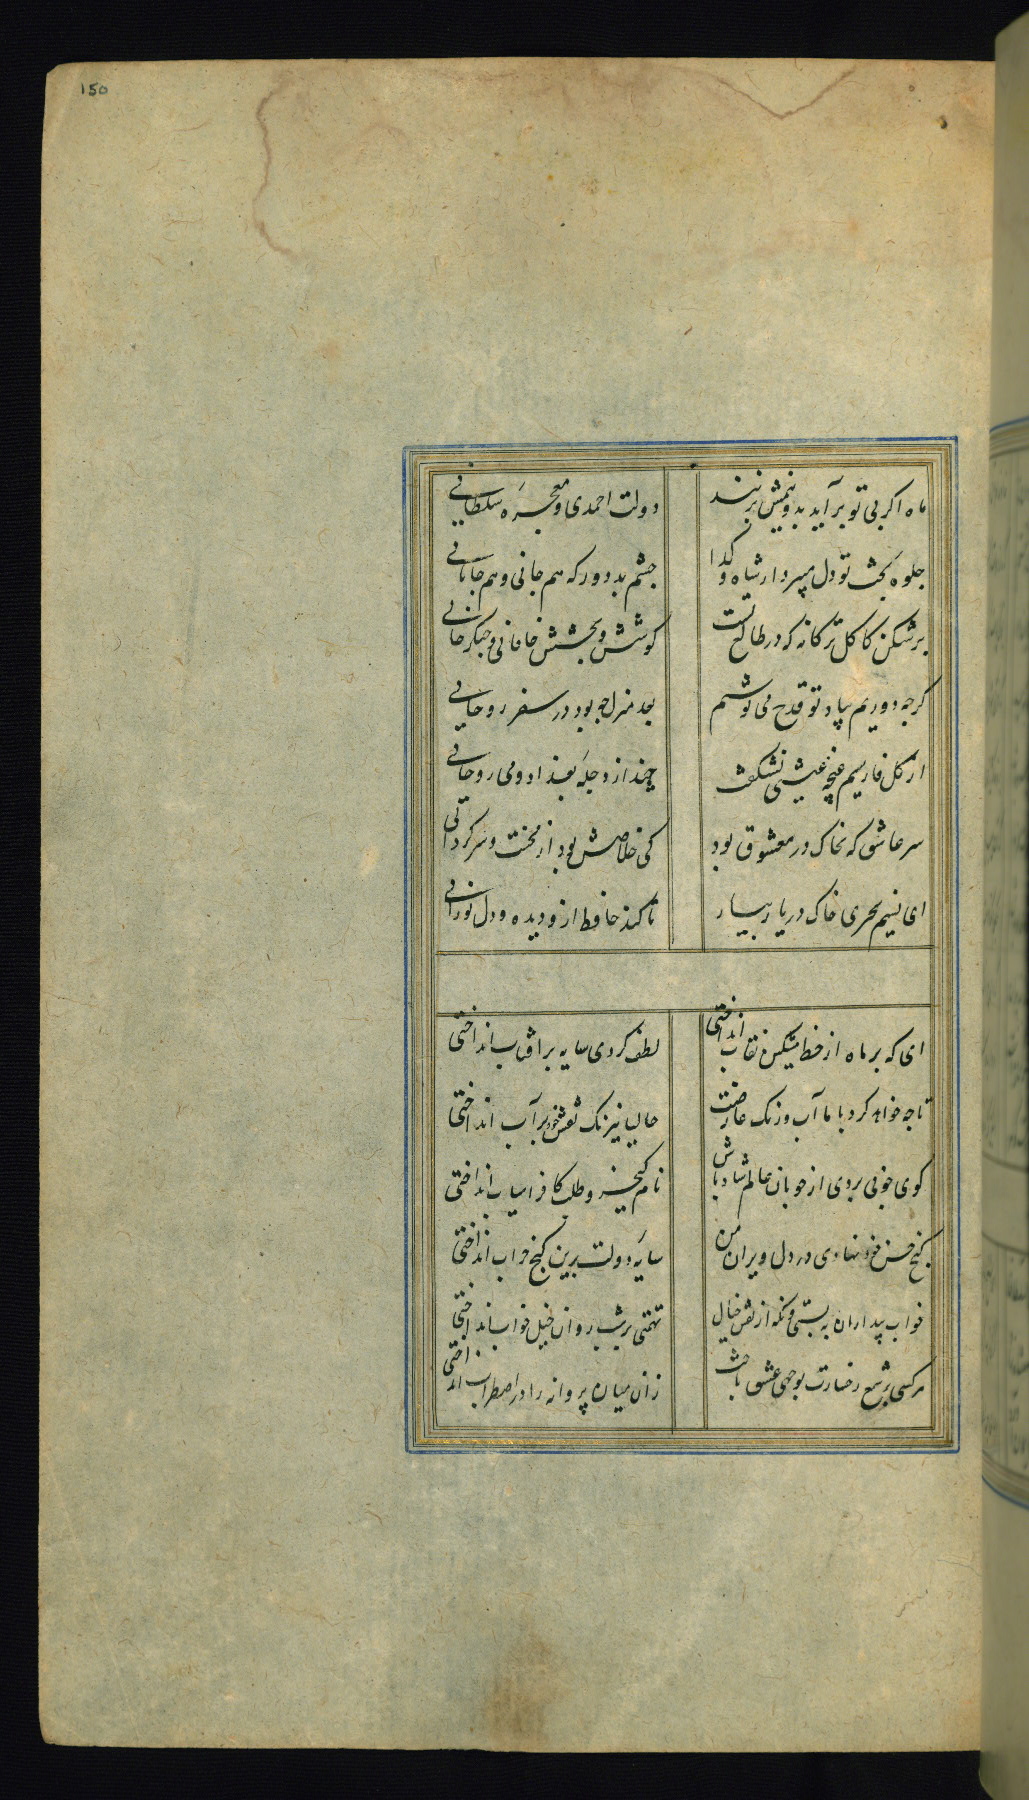 150
ماه اگر بی تو برآید بدو نیمش بزنند
دولت احمدی و معجزه سلطانی
جلوه بخت تو دل میبرد از شاه و گدا
چشم بد دور که هم جانی و هم جانانی
برشکن کاکل ترکانه که در طالع تست
کوشش و بخشش خاقانی و چنگزخانی
گرچه دوریم بیاد تو قدح می نوشیم
بعد منزل چه بود در سفر روحانی
از گل فارسیم غنچه عیشی نشکفت
حبذا دجله بغداد و می روحانی
سر عاشق که نه خاک در معشوق بود
کی خلاصش بود از محنت و سرگردانی
ای نسیم سحری خاک در یار بیار
تا کند حافظ ازو دیده و دل نورانی
ای که بر ماه از خط مشکین نقاب انداختی
لطف کردی سایه بر آفتاب انداختی
تا چه خواهد کرد با ما آب و رنگ عارضت
حالیا نیرنگ نقش خود بر آب انداختی
گوی خوبی بردی از خوبان عالم شاد باش
جام کیخسرو طلب کافراسیاب انداختی
گنج حسن خود نهادی در دل ویران من
سایه دولت برین کنج خراب انداختی
خواب بیداران به بستی وانگه از نقش خیال
تهمتی بر شب روان خیل خواب انداختی
هر کسی بر شمع رخسارت بوجهی عشق باخت
زان میان پروانه را در اضطراب انداختی